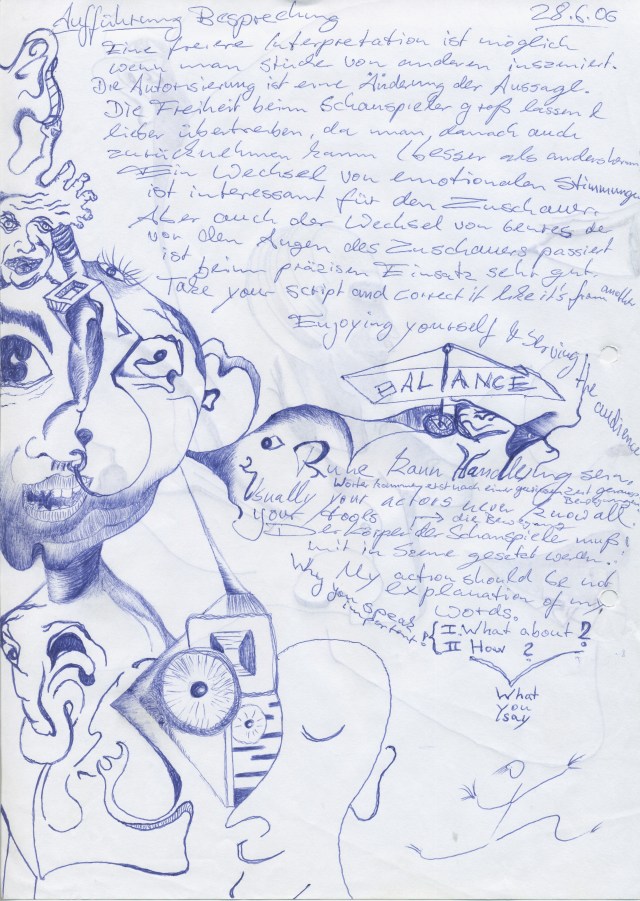 Aufführung Besprechung 28.6.06
Eine freiere Interpretation ist möglich
wenn man stücke von anderen inszeniert.
Die Autorisierung ist eine Änderung der Aussage.
Die Freiheit beim Schauspieler groß lassen &
lieber übertreiben, da man danach auch
zurücknehmen kann (besser als andersherum
Ein Wechsel von emotionalen Stimmungen
ist interessant für den Zuschauer.
Aber auch der Wechsel von
vor den Augen des Zuschauers passiert
ist beim präzisen Einsatz sehr gut.
Take your script and correct it like it's from another
Enjoying yourself & serving the audience
BALANCE
Ruhe kann Handlung sein,
Worte kommen erst nach einer
Usually your actors never know all
your Hooks → die Bewegung?
Der Körper der Schauspieler muß
mit in Scene gesetzt werden!
My action should be not
explanation of my
words.
Why you speak
important?
I. What about?
II How?
What
you
say